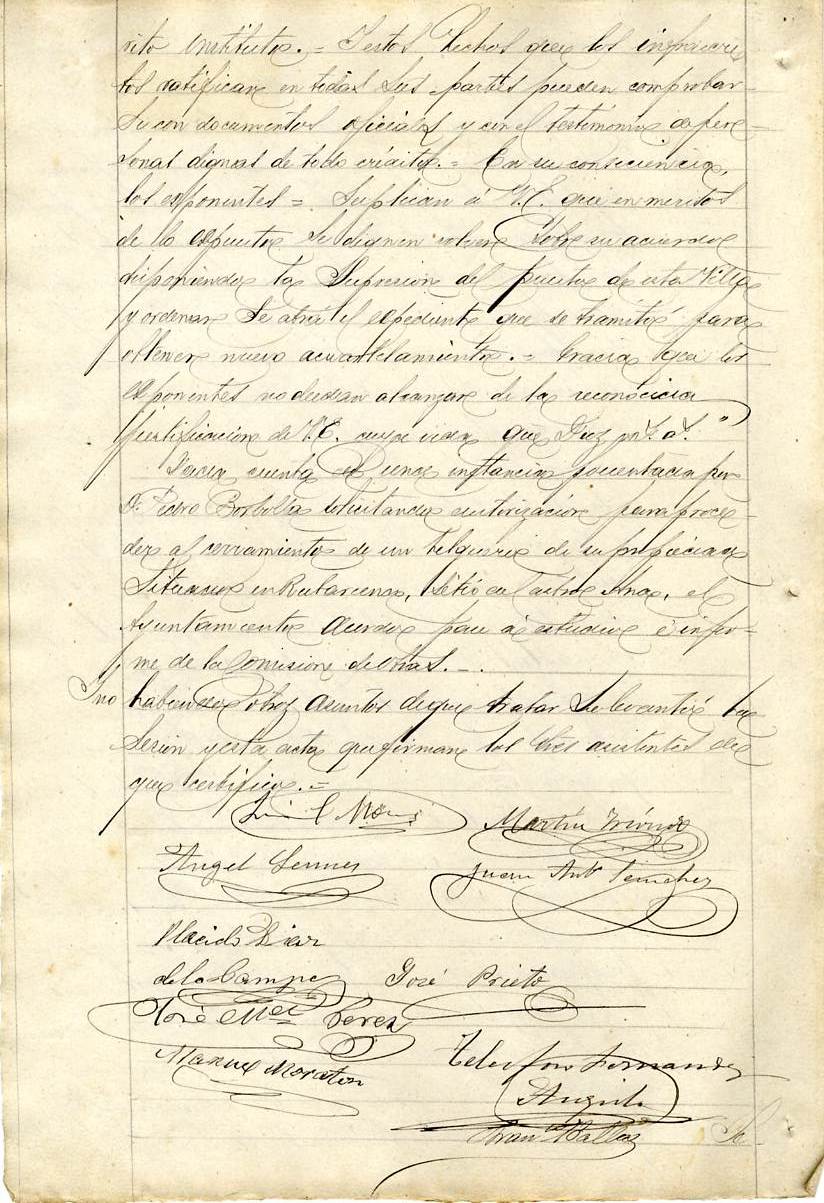 rito instituto. = Y estos hechos que los infrascri
tos ratifican en todas sus partes pueden comprobar-
se con documentos oficiales y con el testimonio de per-
sonas dignas de todo crédito. = En su consecuencia,
los esponentes = Suplican á V.E. que en meritos
de lo espuesto se dignen volver sobre su acuerdo
disponiendo la supresion del puesto de esta Villa
y ordenar se abra el espediente que se tramité para
obtener nuevo acuartelamiento. = Gracia que los
esponentes no dudan alcanzar de la reconocida
justificacion de V.E. cuya vida que Dios m.s a.s "
cuenta de una instancia presentada por
D. Pedro Borbolla solicitando autorización para proce-
der al cerramiento de un de su propiedad
situado en sitio el
Ayuntamiento acordó pase á estudio é infor-
me de la Comision de Obras. -
Y no habiendo otros asuntos de que tratar se levantó la
sesion y esta acta que firman los Sres asistentes de
que certifico. =
Martín
Angel Juan Ant.o Sanchez
Placido Diaz
de la Campa José Prieto
José M.el Perez
Manuel Moraton Telesforo Fernandez
Fran.co
Se